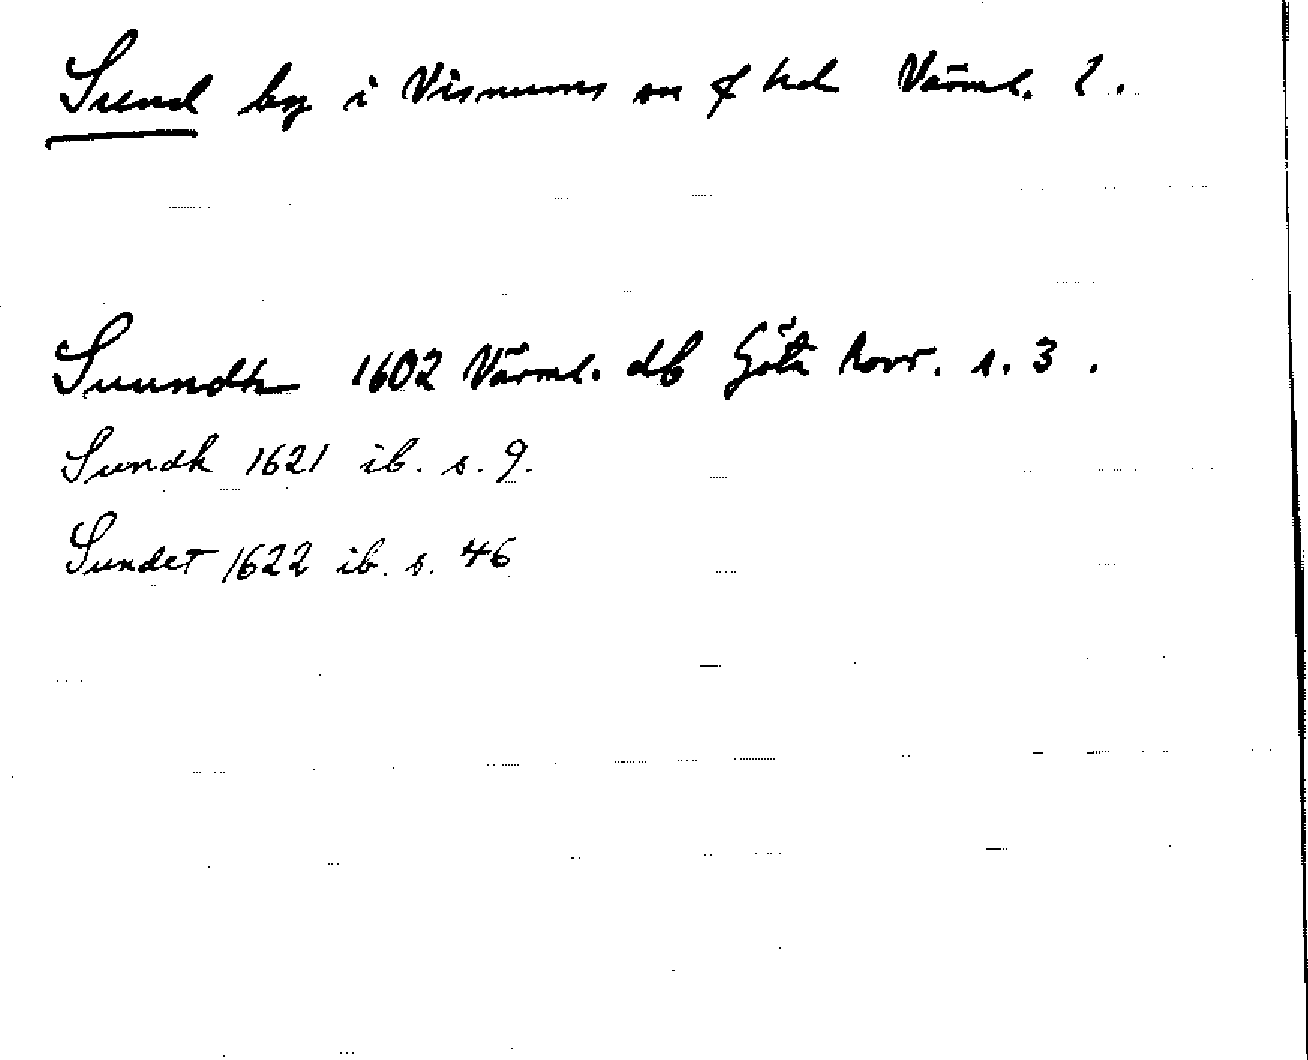 Sund by i Visnums sn o hd Värml. l.
Suundh 1602 Värml. db Göta hovr. s. 3.
Sundh 1621 ib. s. 9.
Sundet 1622 ib. s. 46